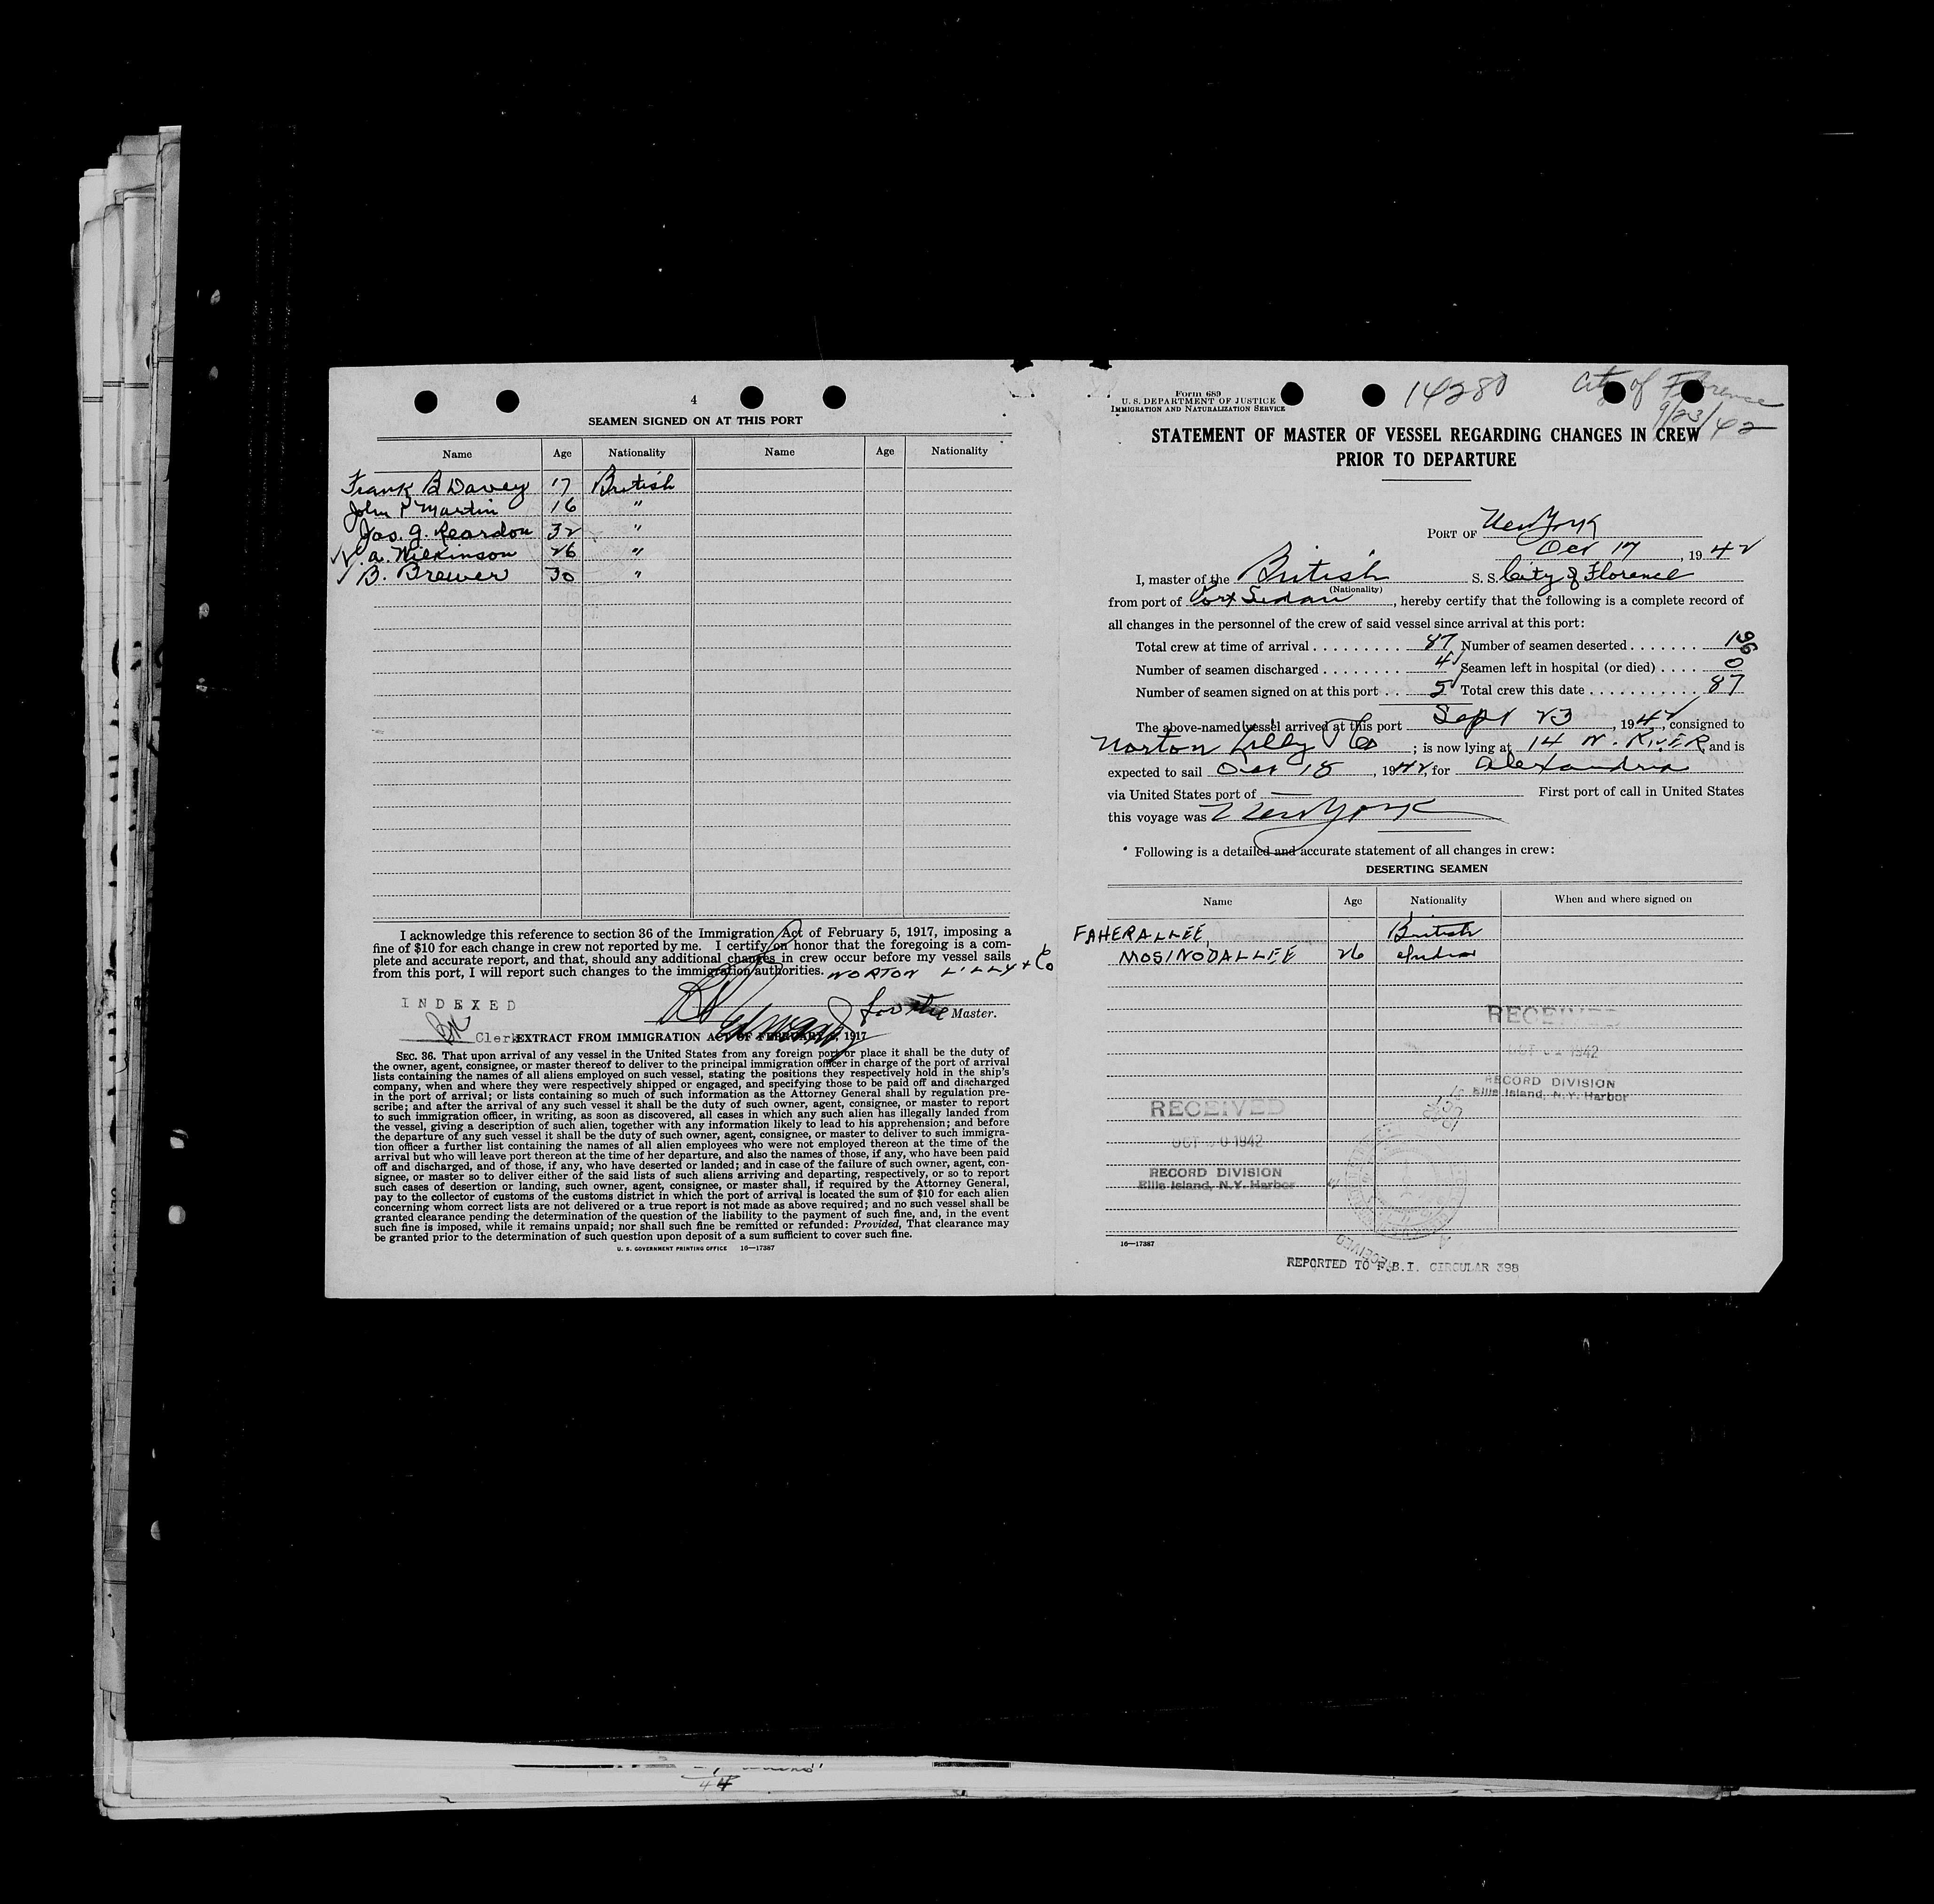 4
SEAMEN SIGNED ON AT THIS PORT
Name Age Nationality Name Age Nationality
Frank B Davey 17 British
John P Martin 16 "
Jas. J. Reardon 32 "
A. Wilkinson 26 "
B. Brewer 30 "
I acknowledge this reference to section 36 of the Immigration Act of February 5, 1917, imposing a
fine of $10 for each change in crew not reported by me. I certify on honor that the foregoing is a com-
plete and accurate report, and that, should any additional changes in crew occur before my vessel sails
from this port, I will report such changes to the immigration authorities. NORTON LILLY & Co
INDEXED
for the Master.
Clerk
EXTRACT FROM IMMIGRATION ACT OF FEBRUARY 5, 1917
SEC. 36. That upon arrival of any vessel in the United States from any foreign port or place it shall be the duty of
the owner, agent, consignee, or master thereof to deliver to the principal immigration officer in charge of the port of arrival
lists containing the names of all aliens employed on such vessel, stating the positions they respectively hold in the ship's
company, when and where they were respectively shipped or engaged, and specifying those to be paid off and discharged
in the port of arrival; or lists containing so much of such information as the Attorney General shall by regulation pre-
scribe; and after the arrival of any such vessel it shall be the duty of such owner, agent, consignee, or master to report
to such immigration officer, in writing, as soon as discovered, all cases in which any such alien has illegally landed from
the vessel, giving a description of such alien, together with any information likely to lead to his apprehension; and before
the departure of any such vessel it shall be the duty of such owner, agent, consignee, or master to deliver to such immigra-
tion officer a further list containing the names of all alien employees who were not employed thereon at the time of the
arrival but who will leave port thereon at the time of her departure, and also the names of those, if any, who have been paid
off and discharged, and of those, if any, who have deserted or landed; and in case of the failure of such owner, agent, con-
signee, or master so to deliver either of the said lists of such aliens arriving and departing, respectively, or so to report
such cases of desertion or landing, such owner, agent, consignee, or master shall, if required by the Attorney General,
pay to the collector of customs of the customs district in which the port of arrival is located the sum of $10 for each alien
concerning whom correct lists are not delivered or a true report is not made as above required; and no such vessel shall be
granted clearance pending the determination of the question of the liability to the payment of such fine, and, in the event
such fine is imposed, while it remains unpaid; nor shall such fine be remitted or refunded: Provided, That clearance may
be granted prior to the determination of such question upon deposit of a sum sufficient to cover such fine.
U. S. GOVERNMENT PRINTING OFFICE 16—17387
Form 689
U. S. DEPARTMENT OF JUSTICE
IMMIGRATION AND NATURALIZATION SERVICE
14280
City of Florence
9/23/42
STATEMENT OF MASTER OF VESSEL REGARDING CHANGES IN CREW
PRIOR TO DEPARTURE
PORT OF New York
Oct 17, 1942
I, master of the British S. S. City of Florence
(Nationality)
from port of Port Sudan, hereby certify that the following is a complete record of
all changes in the personnel of the crew of said vessel since arrival at this port:
Total crew at time of arrival 87 Number of seamen deserted 1
Number of seamen discharged 4 Seamen left in hospital (or died) 0
Number of seamen signed on at this port 5 Total crew this date 87
The above-named vessel arrived at this port Sept 23, 1942, consigned to
Norton Lilly & Co; is now lying at 14 N. RIVER, and is
expected to sail Oct 18, 1942, for Alexandria
via United States port of — First port of call in United States
this voyage was New York
Following is a detailed and accurate statement of all changes in crew:
DESERTING SEAMEN
Name Age Nationality When and where signed on
FAHERALLEE, British
MOSINODALLEE 26 India
RECEIVED
1942
RECORD DIVISION
Ellis Island, N.Y. Harbor
RECEIVED
OCT 20 1942
RECORD DIVISION
Ellis Island, N.Y. Harbor
RECEIVED
16—17387
REPORTED TO F.B.I. CIRCULAR 398
44